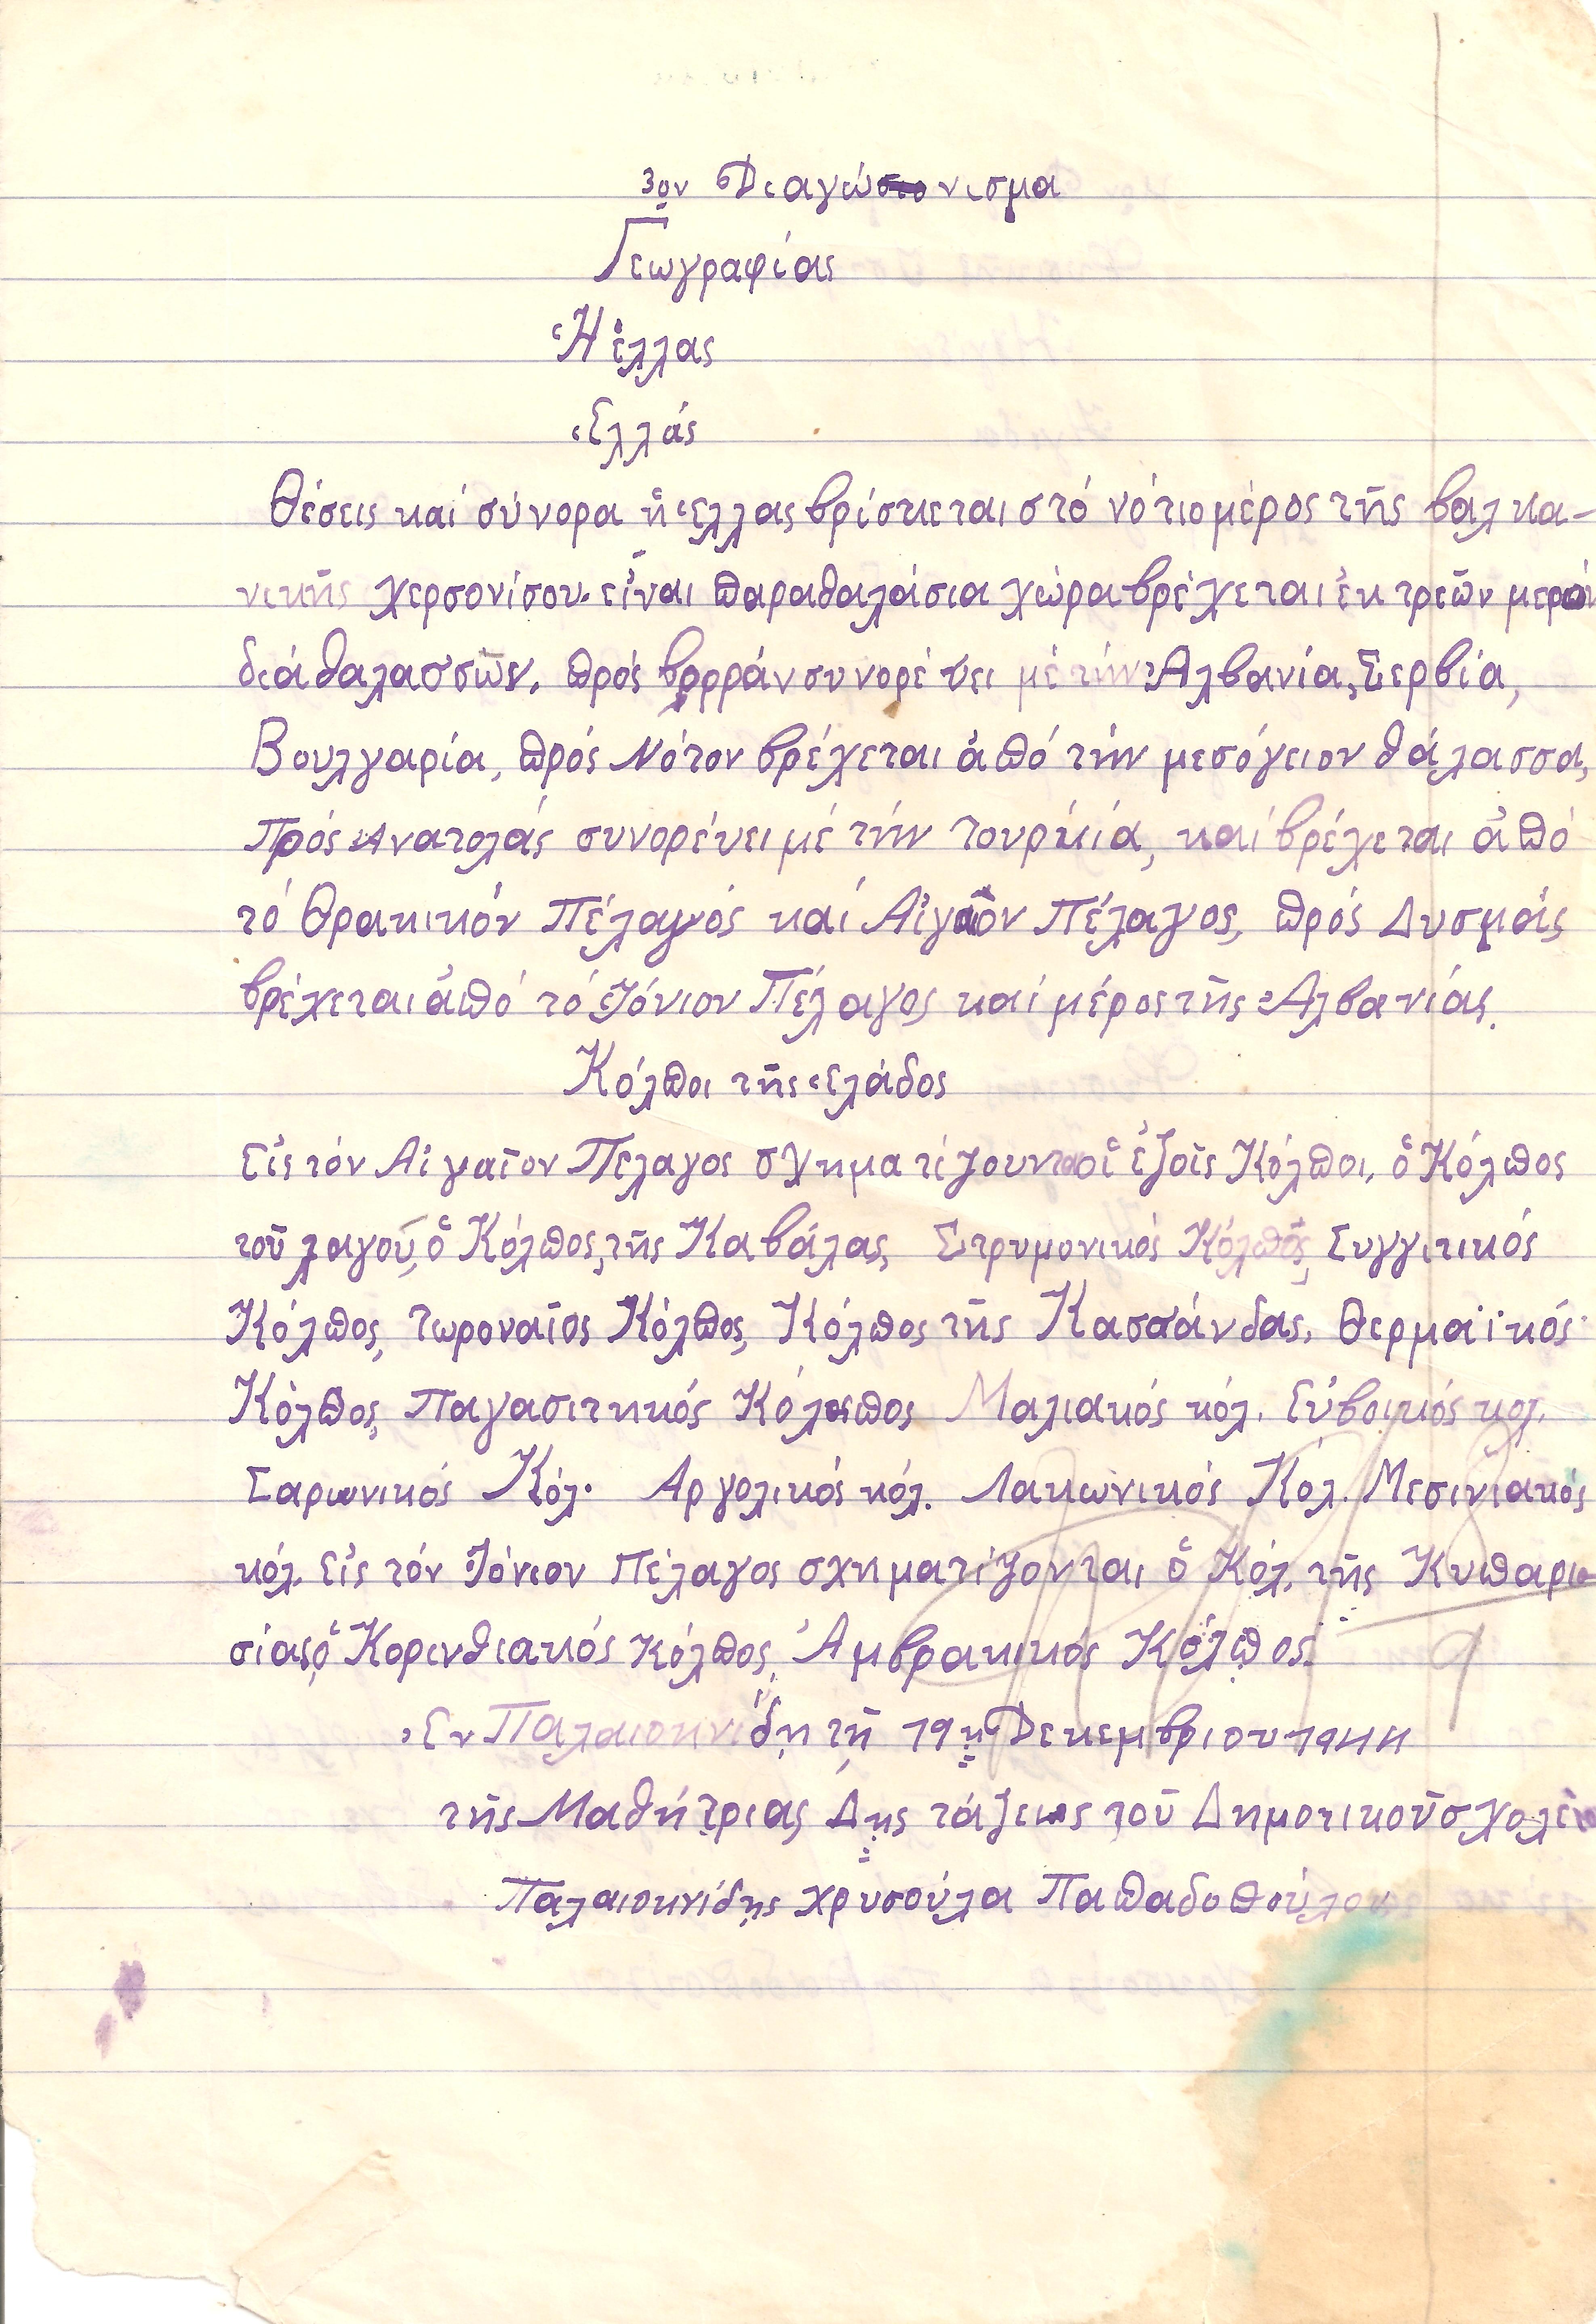 3ον Διαγώνισμα
Γεωγραφίας
Ἡ ἑλλας
Ἑλλάς
Θέσεις καί σύνορα ἥ ἑλλας βρίσκεται στό νότιο μέρος τῆς βαλκα-
νικῆς χερσονίσου. εἶναι παραθαλάσια χώρα βρέχεται ἐκ τρεῶν μερῶν
διά θαλασσῶν. πρός βορράν συνορέυει μέ τήν Ἀλβανία, Σερβία,
Βουλγαρία, πρός Νότον βρέχεται ἀπό τήν μεσόγειον θάλασσα,
Πρός Ἀνατολάς συνορέυει μέ τήν Τουρκία, καί βρέχεται ἀπό
τό Θρακικόν Πέλαγός καί Αἰγαῖον Πέλαγος, πρός Δυσμάς
βρέχεται ἀπό τό Ἰόνιον Πέλαγος καί μέρος τῆς Ἀλβανίας.
Κόλποι τῆς Ἑλάδος
Εἰς τόν Αἰγαῖον Πελαγος σχηματίζουνται οἵ ἐξοῖς Κόλποι, ὅ Κόλπος
τοῦ λαγού, ὅ Κόλπος, τῆς Καβάλας, Στρυμονικός Κόλπος, Συγγιτικός
Κόλπος, Τωροναῖος Κόλπος, Κόλπος τῆς Κασσάνδας, Θερμαϊκός
Κόλπος, Παγασιτικός Κόλπος Μαλιακός κόλ. Εὐβοικός κολ.
Σαρωνικός Κόλ. Αργολικός κόλ. Λακωνικός Κόλ. Μεσινιακός
κόλ. Εἰς τόν Ἰόνιον Πέλαγος σχηματίζονται ὅ Κόλ. τῆς Κυπαρισ
σίας, ὅ Κορινθιακός Κόλπος, Ἀμβρακικός Κόλπος.
Ἐν Παλαιοκνίδῃ τῇ 19ῃ Δεκεμβριου 1944
τῆς Μαθήτριας Δης τάξεως τοῦ Δημοτικοῦ σχολείου
Παλαιοκνίδης Χρυσούλα Παπαδοπούλου
9